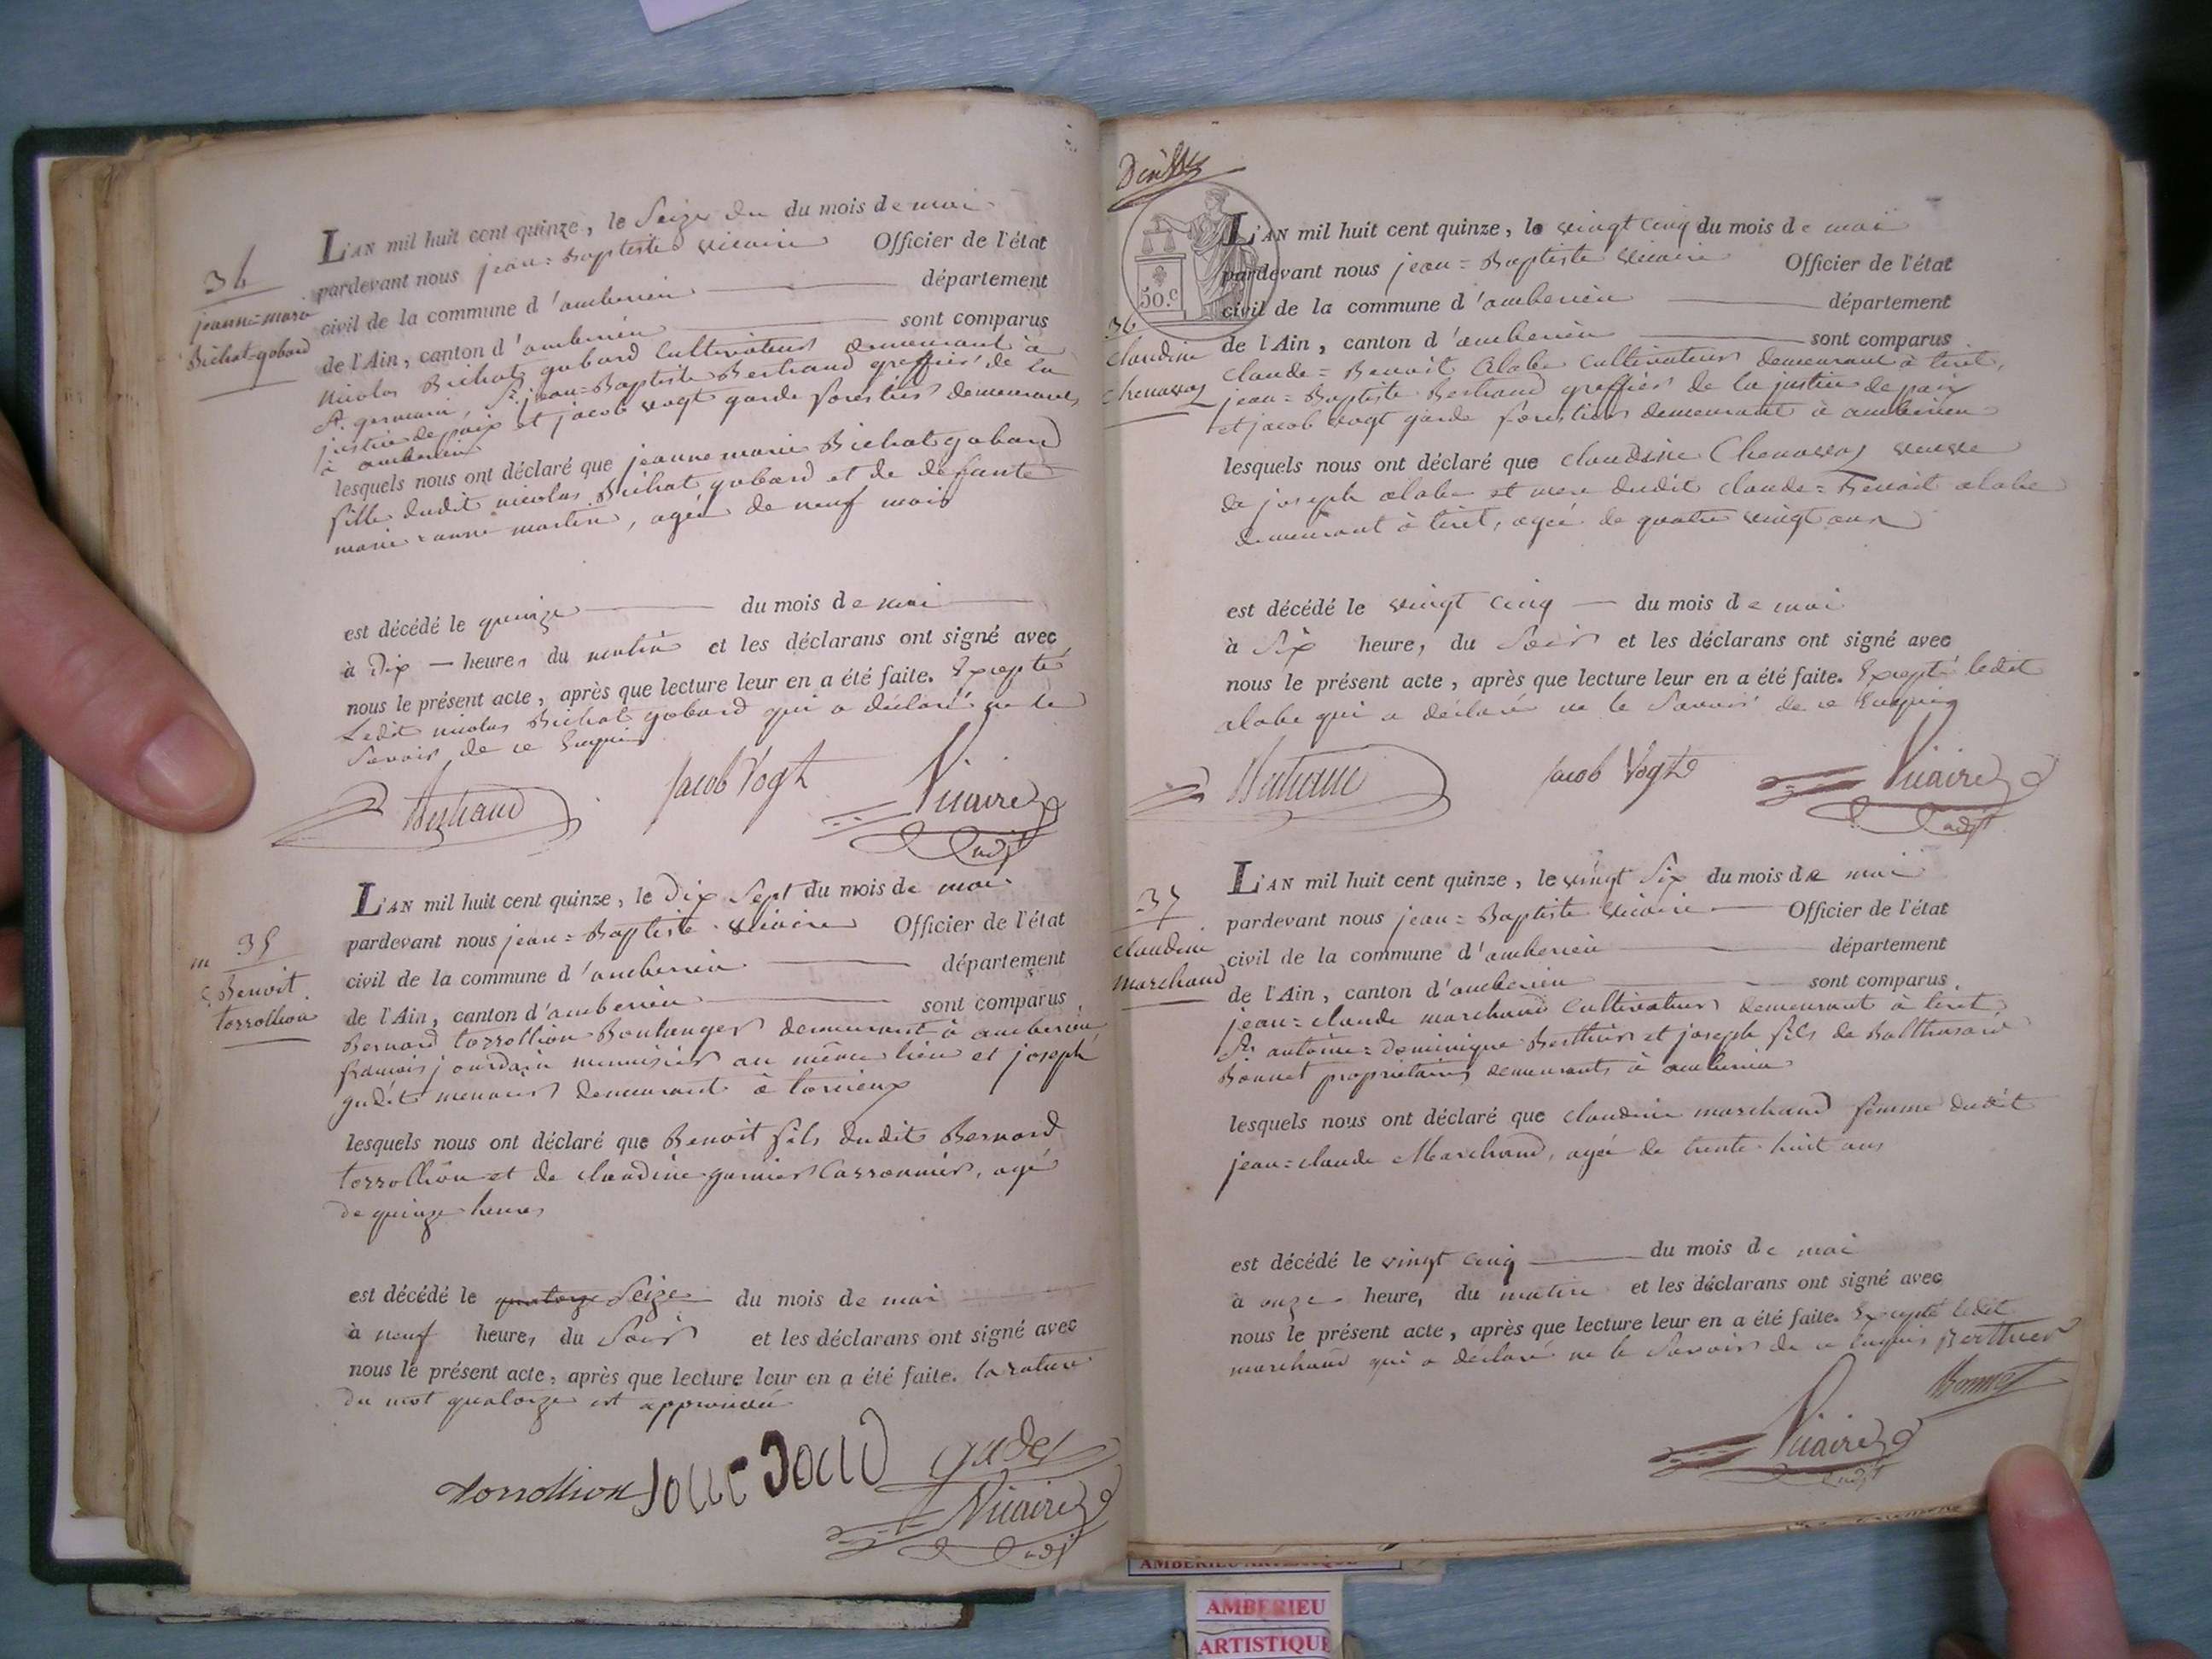 34
jeanne=marie
Bichat=gobard
L'AN mil huit cent quinze, le Seize du du mois de mai
pardevant nous jean=Baptiste vicaire Officier de l'état
civil de la commune d'amberieu département
de l'Ain, canton d'amberieu sont comparus
nicolas Bichat gobard Cultivateur demeurant à
St. germain, Sr. jean=Baptiste Bertrand greffier de la
justice de paix et jacob vogt garde forestier demeurants
à amberieu
lesquels nous ont déclaré que jeanne marie Bichat gobard
fille dudit nicolas Bichat gobard et de défunte
marie=anne martin, agée de neuf mois
est décédé le quinze du mois de mai
à Dix heures du matin et les déclarans ont signé avec
nous le présent acte, après que lecture leur en a été faite. Excepté
Ledit nicolas Bichat gobard qui a déclaré ne le
Savoir de ce Enquis
Bertrand Jacob Vogt Vicaire
adjt
35
Benoit
torrollion
L'AN mil huit cent quinze, le Dix Sept du mois de mai
pardevant nous jean=Baptiste vicaire Officier de l'état
civil de la commune d'amberieu département
de l'Ain, canton d'amberieu sont comparus
Bernard torrollion Boulanger demeurant à amberieu
francois jourdain menuisier au même lieu et joseph
gudet demeurant à torcieux
lesquels nous ont déclaré que Benoit fils dudit Bernard
torrollion et de claudine garnier Carronnier, agé
de quinze heures
est décédé le quatorze Seize du mois de mai
à neuf heures du Soir et les déclarans ont signé avec
nous le présent acte, après que lecture leur en a été faite. la rature
du mot quatorze est approuvée
torrollion gudet
Vicaire
adjt
50.c
36
Claudine
Chenavas
L'AN mil huit cent quinze, le vingt cinq du mois de mai
pardevant nous jean=Baptiste vicaire Officier de l'état
civil de la commune d'amberieu département
de l'Ain, canton d'amberieu sont comparus
Claude=Benoit alabe Cultivateur demeurant à tiret,
jean=Baptiste Bertrand greffier de la justice de paix
et jacob vogt garde forestier demeurant à amberieu
lesquels nous ont déclaré que claudine Chenavas veuve
de joseph alabe et mere dudit claude=Benoit alabe
demeurant à tiret, agée de quatre vingt ans
est décédé le vingt cinq du mois de mai
à Six heure, du Soir et les déclarans ont signé avec
nous le présent acte, après que lecture leur en a été faite. Excepté ledit
alabe qui a déclaré ne le Savoir de ce Enquis
Bertrand Jacob Vogt Vicaire
adjt
37
claudine
marchand
L'AN mil huit cent quinze, le vingt Six du mois de mai
pardevant nous jean=Baptiste vicaire Officier de l'état
civil de la commune d'amberieu département
de l'Ain, canton d'amberieu sont comparus
jean=claude marchand Cultivateur demeurant à tiret
Sr. antoine=dominique Berthier et joseph fils de Balthasard
Bonnet propriétaires demeurants à amberieu
lesquels nous ont déclaré que claudine marchand femme dudit
jean=claude Marchand, agée de trente huit ans
est décédé le vingt cinq du mois de mai
à onze heure, du matin et les déclarans ont signé avec
nous le présent acte, après que lecture leur en a été faite. Excepté ledit
marchand qui a déclaré ne le Savoir de ce Enquis Berthier
Bonnet
Vicaire
adjt
AMBERIEU ARTISTIQUE
AMBERIEU
ARTISTIQUE